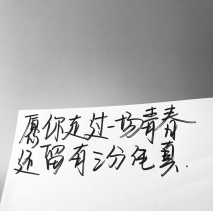 愿你走过一场青春
还留有三分色真.